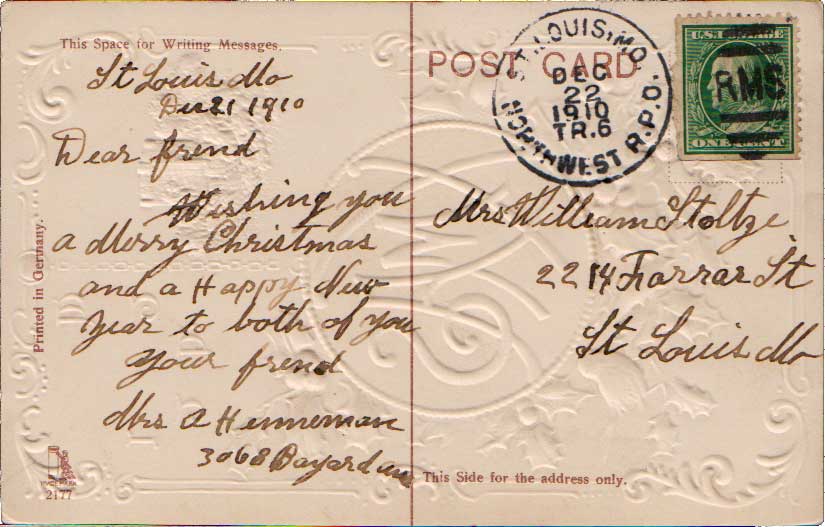 This Space for Writing Messages.
St Louis Mo
Dec 21 1910
Dear frend
Wishing you
a Merry Christmas
and a Happy New
Year to both of you
your frend
Mrs A Henneman
3068 Bayard ave
Printed in Germany.
2177
POST CARD
ST. LOUIS, MO.
DEC
22
1910
TR.6
NORTHWEST R.P.O.
U.S. POSTAGE
RMS
ONE CENT
Mrs William Stoltze
2214 Farrar St
St Louis Mo
This Side for the address only.